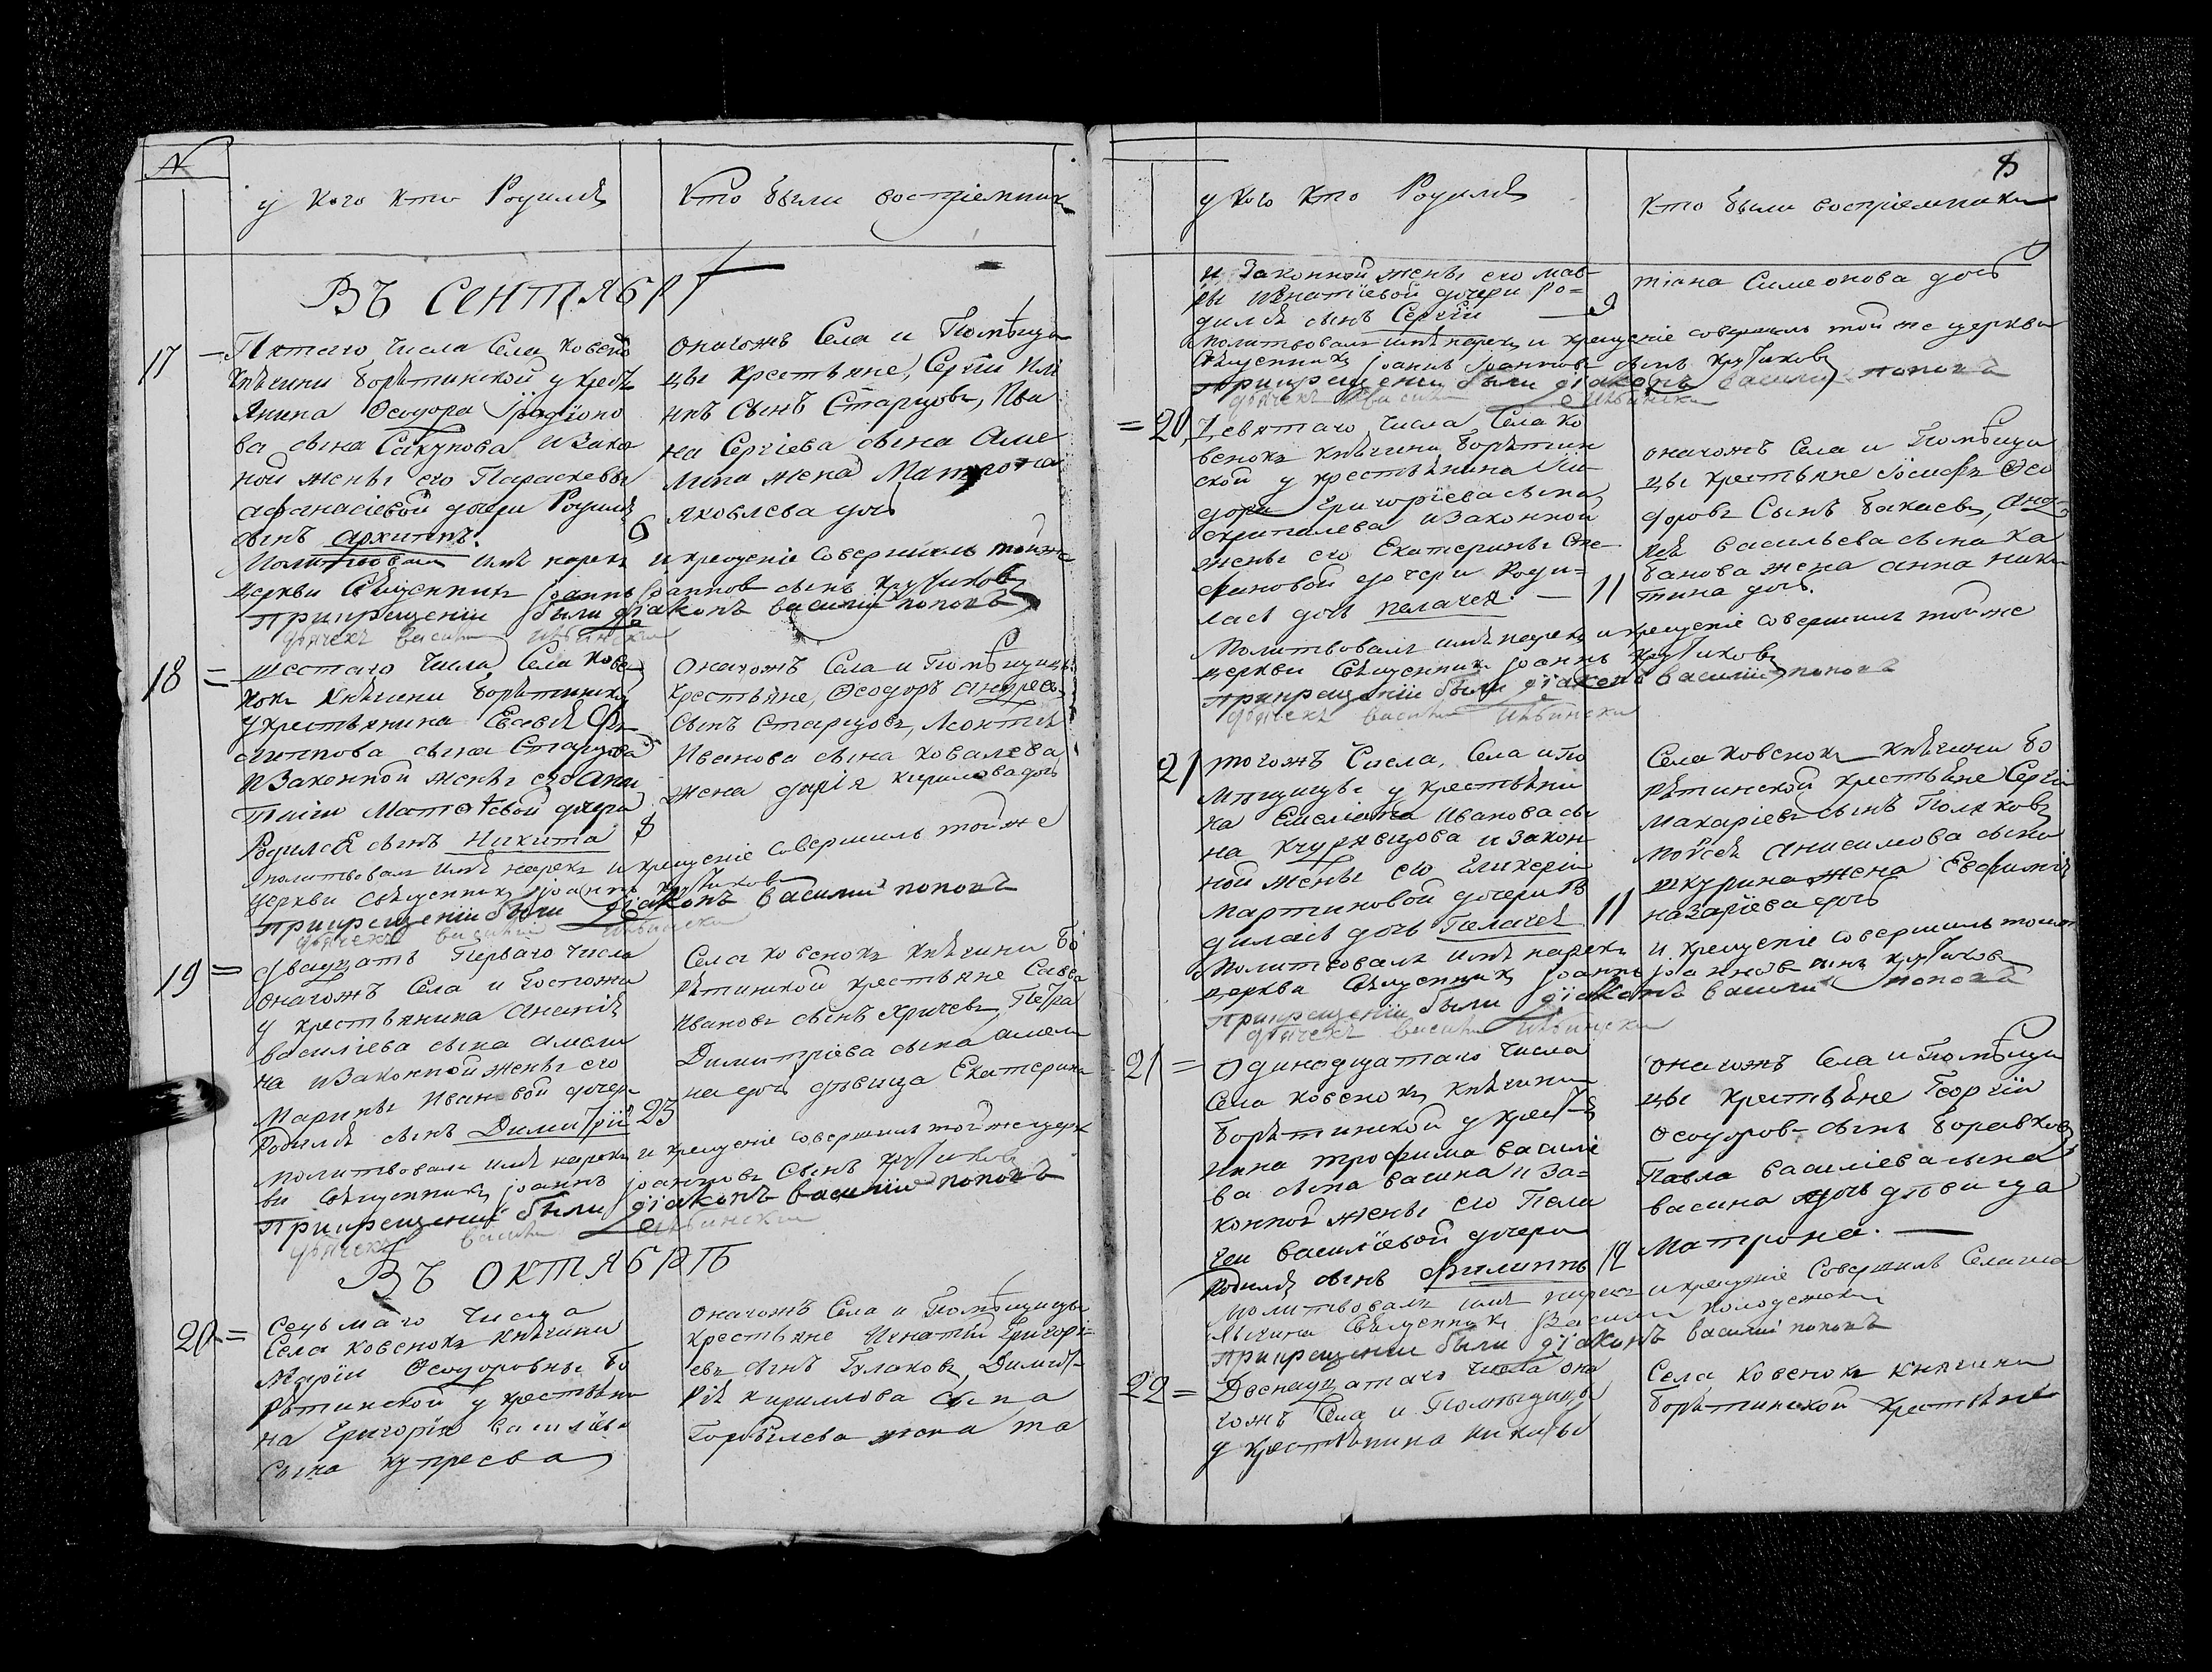 N
у кого кто Родилсѧ
Кто были воспріемники
ВЪ СЕНТЯБРѢ
17 — Пятаго Числа Села Ковено
Кнѧгини Борѧтинской у крестъ
янина Ѳеодора Їродіоно
ва сына Сакунова и Зако
ной жены его Параскевы
афанасіевой дщери Родилсѧ
сынъ архиппъ. 6
Оногожъ Села и Помѣщи
цы Крестьяне, Сергій
инъ Сынъ Старцовъ, Ива
на Сергіева сына Аме
лина жена Матрона
Яковлева дочь
Молитвовалъ имѧ нарекъ и крещеніе Совершилъ тойже
церкви Свѧщенникъ Іоаннъ Іоанновъ сынъ Крутиковъ
При крещеніи были діаконъ василій поповъ
дьячекъ Василий
18 = шестаго Числа Села Кове
нокъ Кнѧгини Борѧтинско
у крестьянина Евсѣѧ Фи
липпова сына Старцова
и Законной жены его
Матѳѣевой дщери
Родилсѧ сынъ Никита 8
Оногожъ Села и Помѣщицы
Крестьяне, Ѳеодоръ андреевъ
Сынъ Старцовъ, Леонтиѧ
Иванова сына Ковалева
жена дарія Кирилова дочь
молитвовалъ имѧ нарекъ и крещеніе Совершилъ тойже
Церкви Свѧщенникъ Іоаннъ Крутиковъ
При крещеніи были діаконъ василий поповъ
дьячекъ василий
19 = двадцать Перваго Числа
Оногожъ Села и Госпожи
у крестьянина Ананіѧ
василіева сына амели
на и Законной жены его
Марины Ивановой дочери
Родилсѧ сынъ Димитрій 23
Села Ковенокъ Кнѧгини Бо
рѧтинской крестьяне Савва
Ивановъ сынъ Кричевъ, Петра
Димитріева сына амели
на дочь дѣвица Екатерина
молитвовалъ имѧ нарекъ и крещеніе совершилъ той же церк
ви Свѧщенникъ Іоаннъ Іоанновъ Сынъ Крутиковъ
При крещеніи были діаконъ василий поповъ
дьячекъ василий
ВЪ ОКТЯБРѢ
20 = Седьмаго Числа
Села Ковенокъ Кнѧгини
Маріи Ѳеодоровны Бо
рѧтинской у крестьяни
на Григорія василіева
сына купреева
Оногожъ Села и Помѣщицы
крестьяне Игнатій Григорі
евъ сынъ Гулаковъ, Димит
ріѧ Кириллова сына
Горбылева жена та
8
у кого кто Родилсѧ
Кто были воспріемники
и Законной жены его мав
ры Игнатїевой дочери ро=
дилсѧ сынъ Сергій — 9
тіана Симеонова дочь
молитвовалъ имѧ нарекъ и крещеніе совершилъ той же церкви
Свѧщенникъ Іоаннъ Іоанновъ сынъ Крутиковъ
При крещеніи были діаконъ василий поповъ
дьячекъ василий
= 20 Девятаго Числа Села Ко
венокъ кнѧгини Борѧтин
ской у крестьянина
дора Григорїева сына
скрипалева и Законной
жены его Екатерины Сте
фановой дочери Роди=
лась дочь пелагеѧ. — 11
оногожъ Села и Помѣщи
цы крестьяне Іосифъ Ѳео
доровъ Сынъ Бакаевъ,
васильева сына Ка
банова жена анна ники
тина дочь.
Молитвовалъ имѧ нарекъ и крещеніе совершилъ той же
церкви Свѧщенникъ Іоаннъ Крутиковъ
При крещеніи были діаконъ василий поповъ
дьячекъ василий
21 тогожъ Числа, Села и По
мѣщицы у крестьяни
на Емеліана Иванова сы
на Кудрявцова и Закон
ной жены его Гликеріи
мартиновой дочери Ро
дилась дочь Пелагеѧ 11
Села Ковенокъ Кнѧгини Бо
рѧтинской крестьяне Сергій
макаріевъ сынъ Поляковъ
Моѵсеѧ анисимова сына
шкурина жена Евфимія
назарїева дочь
Молитвовалъ имѧ нарекъ и крещеніе совершилъ тойже
церкви Свѧщенникъ Іоаннъ Іоанновъ сынъ Крутиковъ
При крещеніи были діаконъ василий поповъ
дьячекъ василий
21 = Одинадцатаго Числа
Села Ковенокъ кнѧгини
Борѧтинской у крестья
нина трофима василіе
ва сына васина и За=
конной жены его Пела
геи василїевой дочери
Родилсѧ сынъ Филиппъ 12
оногожъ Села и Помѣщи
цы Крестьяне Георгій
Ѳеодоровъ сынъ Боравковъ
Павла василіева сына
васина дочь дѣвица
Матрона. —
молитвовалъ имѧ нарекъ и крещеніе Совершилъ Села
Свѧщенникъ Василій Колодежскій
При крещеніи были діаконъ василій поповъ
22 = Двенадцатаго Числа оно
гожъ Села и Помѣщицы
у крестьянина никиты
Села Ковенокъ Кнѧгини
Борѧтинской крестьяне